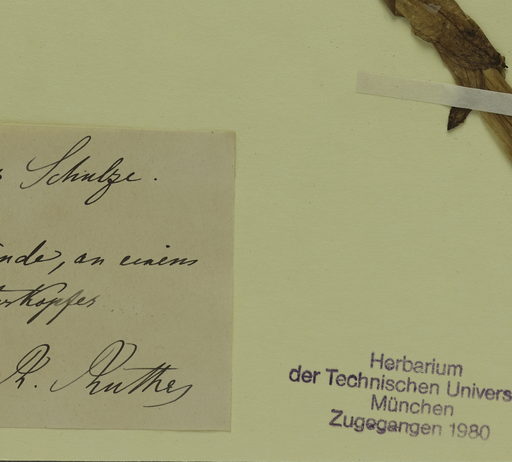 Schulze.
nde, an einem
kopfes
R. Ruthe
Herbarium
der Technischen Univers
München
Zugegangen 1980